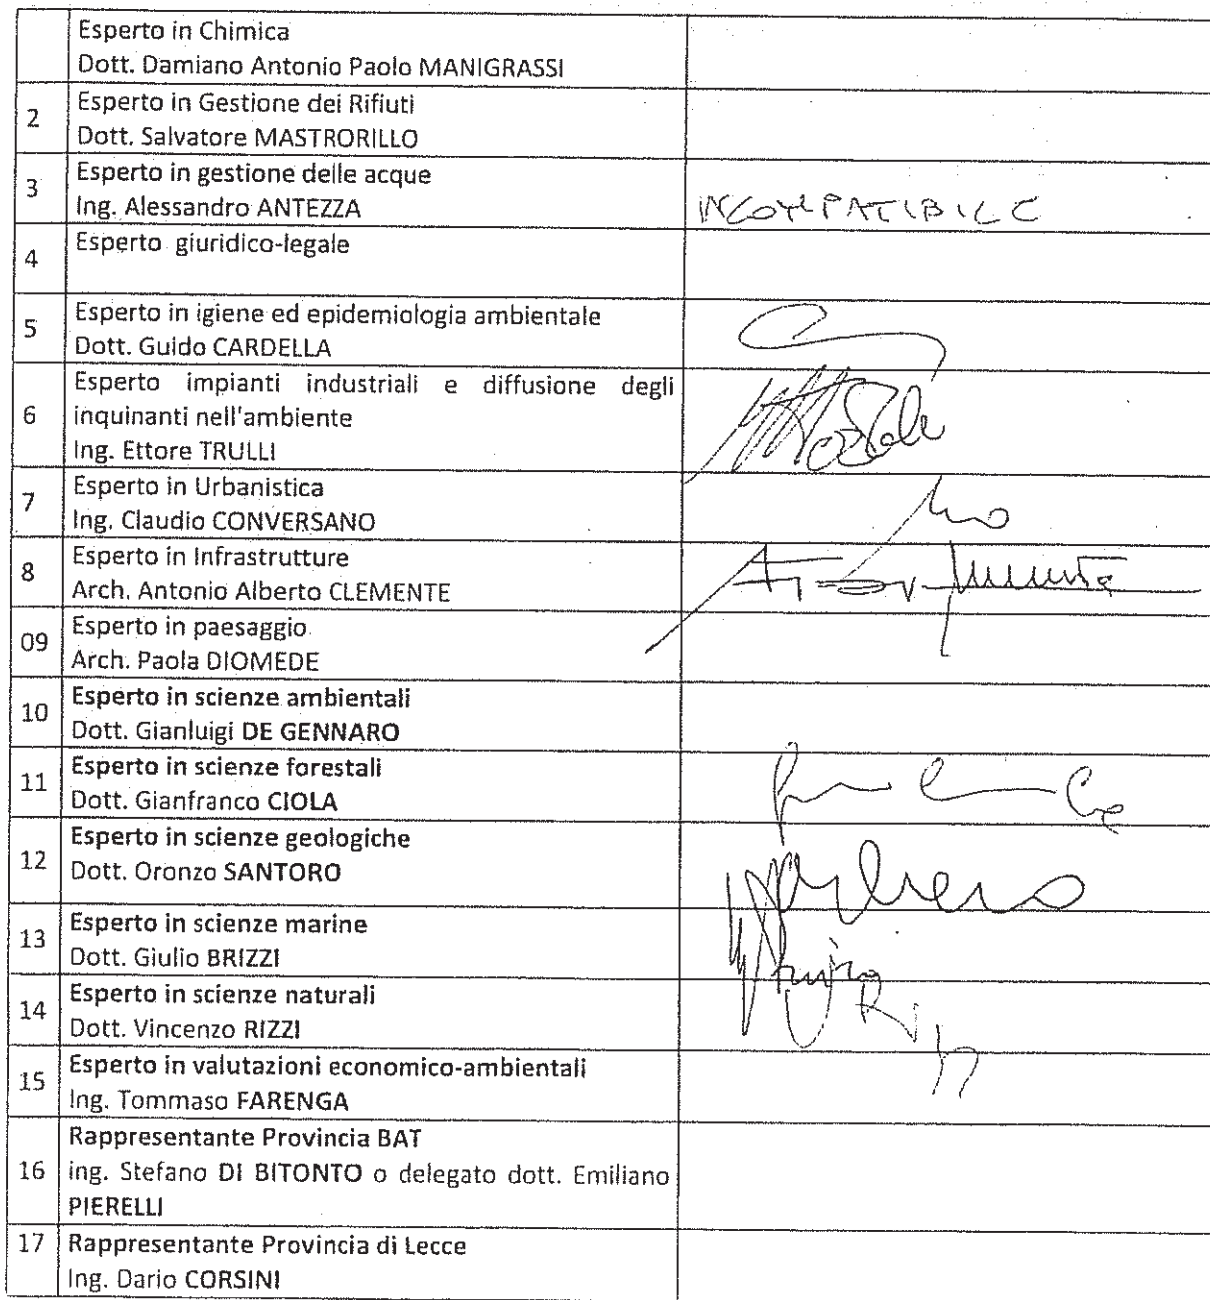 Esperto in Chimica
Dott. Damiano Antonio Paolo MANIGRASSI
2
Esperto in Gestione dei Rifiuti
Dott. Salvatore MASTRORILLO
3
Esperto in gestione delle acque
Ing. Alessandro ANTEZZA
INCOMPATIBILE
4
Esperto giuridico-legale
5
Esperto in igiene ed epidemiologia ambientale
Dott. Guido CARDELLA
6
Esperto impianti industriali e diffusione degli
inquinanti nell'ambiente
Ing. Ettore TRULLI
7
Esperto in Urbanistica
Ing. Claudio CONVERSANO
8
Esperto in Infrastrutture
Arch. Antonio Alberto CLEMENTE
09
Esperto in paesaggio
Arch. Paola DIOMEDE
10
Esperto in scienze ambientali
Dott. Gianluigi DE GENNARO
11
Esperto in scienze forestali
Dott. Gianfranco CIOLA
12
Esperto in scienze geologiche
Dott. Oronzo SANTORO
13
Esperto in scienze marine
Dott. Giulio BRIZZI
14
Esperto in scienze naturali
Dott. Vincenzo RIZZI
15
Esperto in valutazioni economico-ambientali
Ing. Tommaso FARENGA
16
Rappresentante Provincia BAT
ing. Stefano DI BITONTO o delegato dott. Emiliano
PIERELLI
17
Rappresentante Provincia di Lecce
Ing. Dario CORSINI